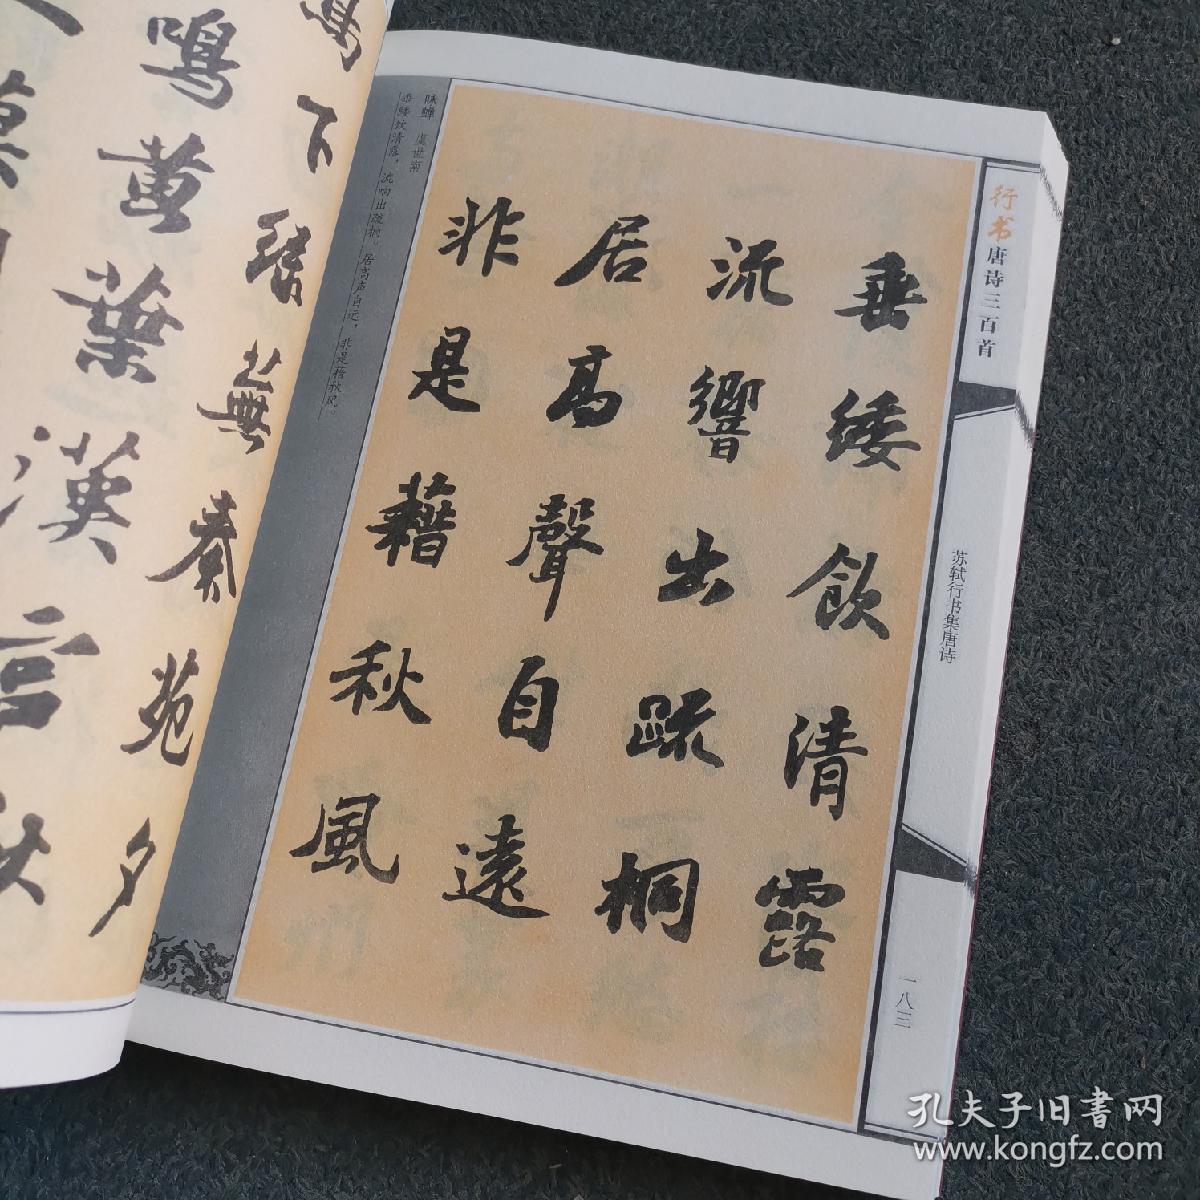 垂緌飲清露
流響出疏桐
居高聲自遠
非是藉秋風
咏蝉 虞世南
垂緌饮清露，流响出疏桐。居高声自远，非是藉秋风。
行书唐诗三百首
苏轼行书集唐诗
一八三
下
蕪
秦苑夕
鳴黃葉漢
言
秋
孔夫子旧書网
www.kongfz.com